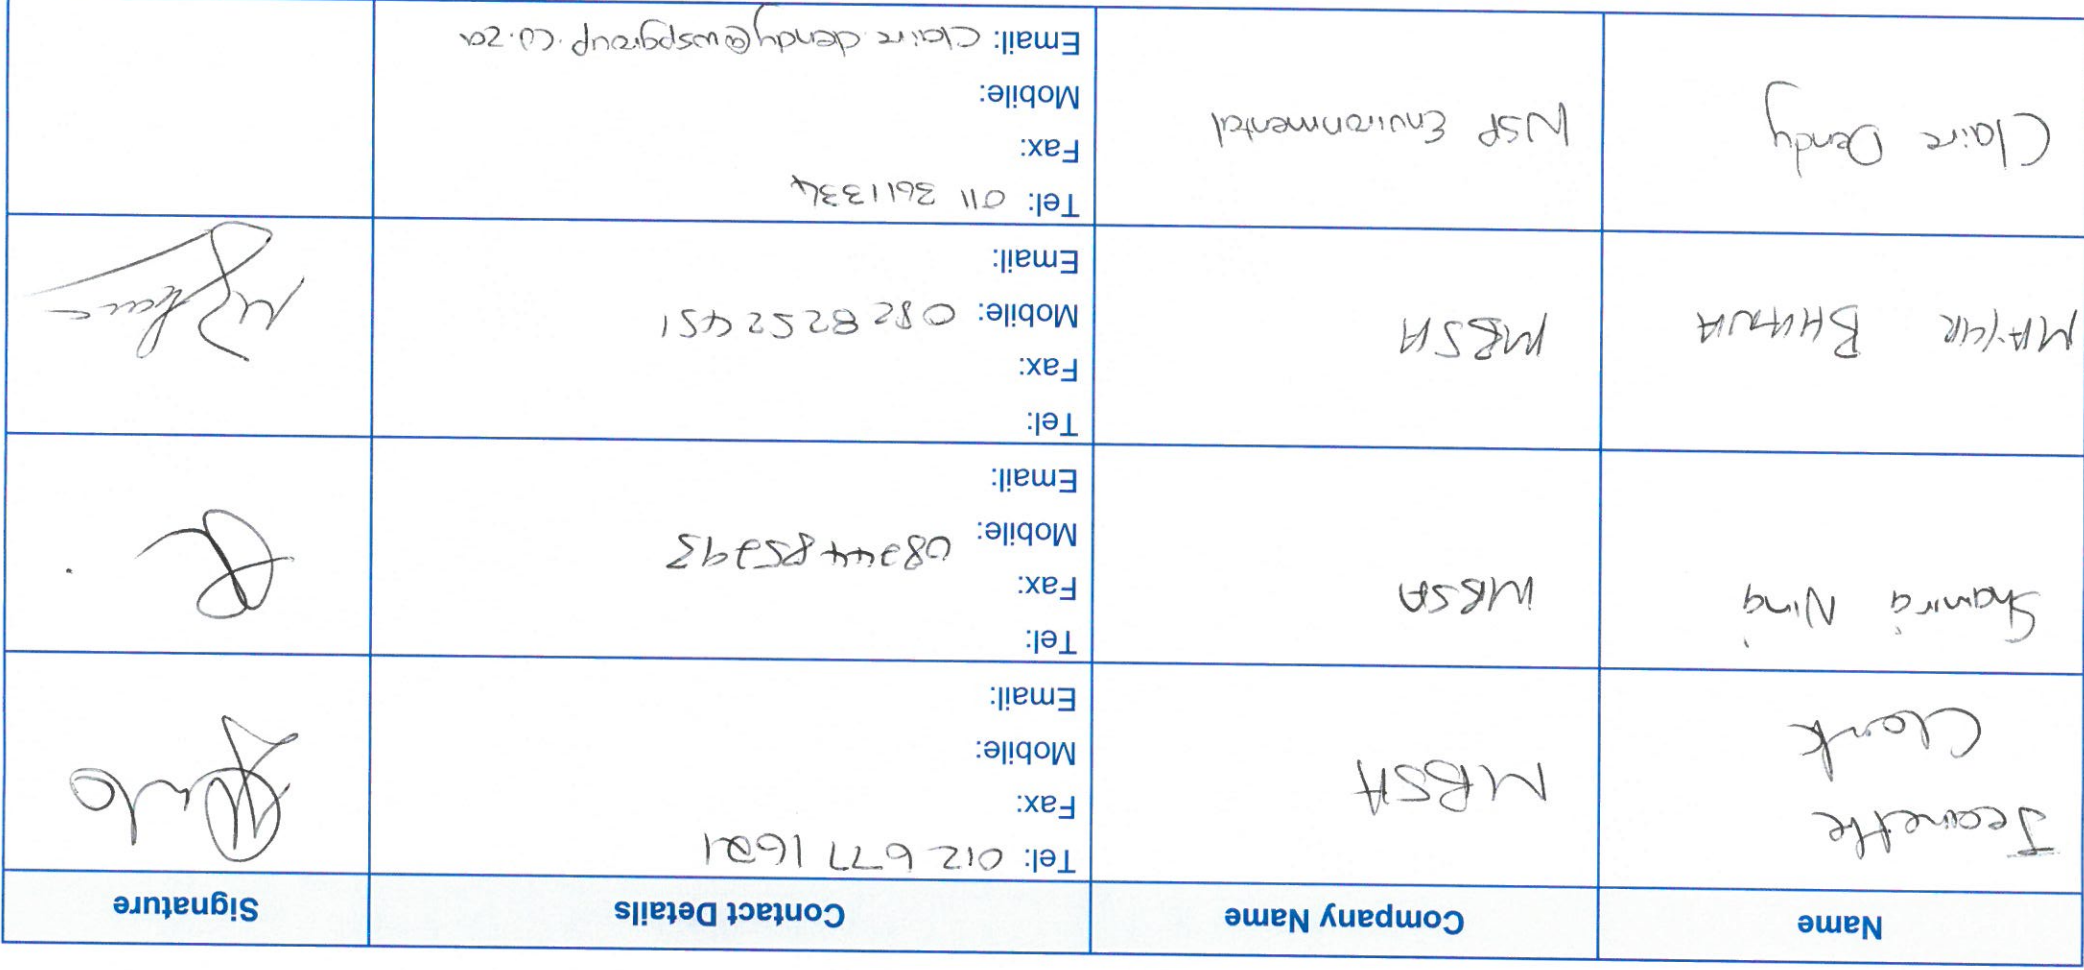 Name Company Name Contact Details Signature
Jeanette
Clark
MBSA
Tel: 012 677 1621
Fax:
Mobile:
Email:
Shamira
MBSA
Tel:
Fax:
Mobile: 0834485793
Email:
MAYUR BHANA
MBSA
Tel:
Fax:
Mobile: 082 8252451
Email:
Claire Dendy
WSP Environmental
Tel: 011 3611334
Fax:
Mobile:
Email: Claire.dendy@wspgroup.co.za